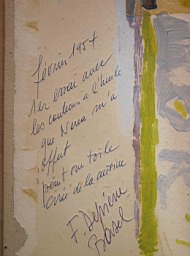 février 1957
1er essai avec
les couleurs a l'huile
que Nena m'a
offert
peint sur toile
cirée de la cuisine
F.
Basel